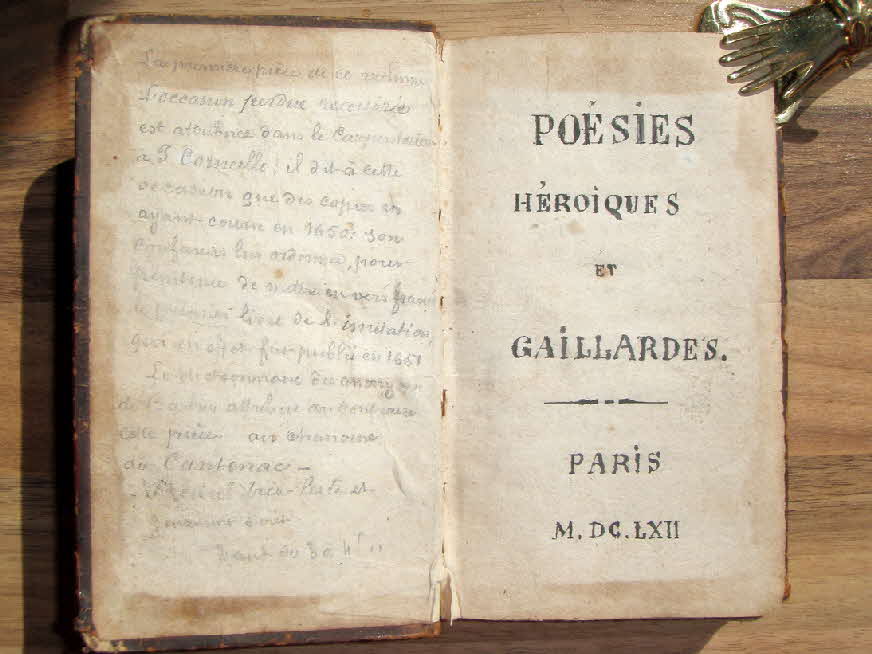 La première pièce de ce volume
L'occasion perdue recouvrée
est attribuée dans le Carpenteriana
à P. Corneille : il dit à cette
occasion que des copies en
ayant couru en 1650, son
confesseur lui ordonna, pour
pénitence de mettre en vers français
le premier livre de l'imitation,
qui en effet fut publié en 1651
Le dictionnaire des anonymes
de attribue au contraire
cette pièce au chanoine
de Cantenac —
très
POÉSIES
HÉROIQUES
ET
GAILLARDES.
PARIS
M. DC. LXII